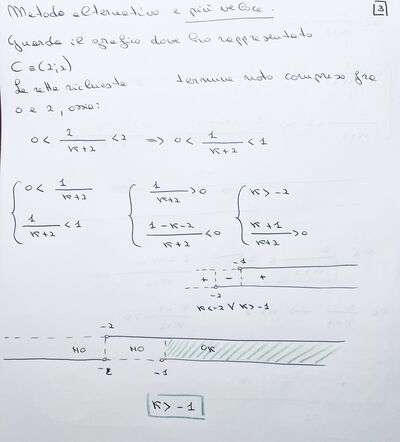 Metodo alternativo e più veloce.
3
Guarda il grafico dove ho rappresentato
C ≡ (2;2)
Le rette richieste termine noto compreso fra
0 e 2, ossia:
0 < 2/(K+2) < 2 => 0 < 1/(K+2) < 1
{ 0 < 1/(K+2) { 1/(K+2) > 0 { K > -2
{ 1/(K+2) < 1 { (1-K-2)/(K+2) < 0 { (K+1)/(K+2) > 0
-1
+ - +
-2
K < -2 V K > -1
-2
NO NO OK
-2 -1
K > -1